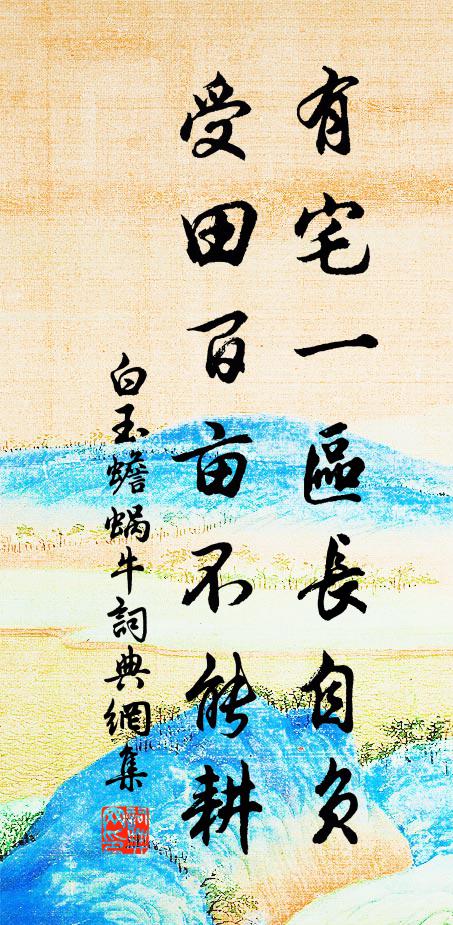 有宅一區長自負
受田百亩不能耕
白玉蟾蝸牛詞典網集